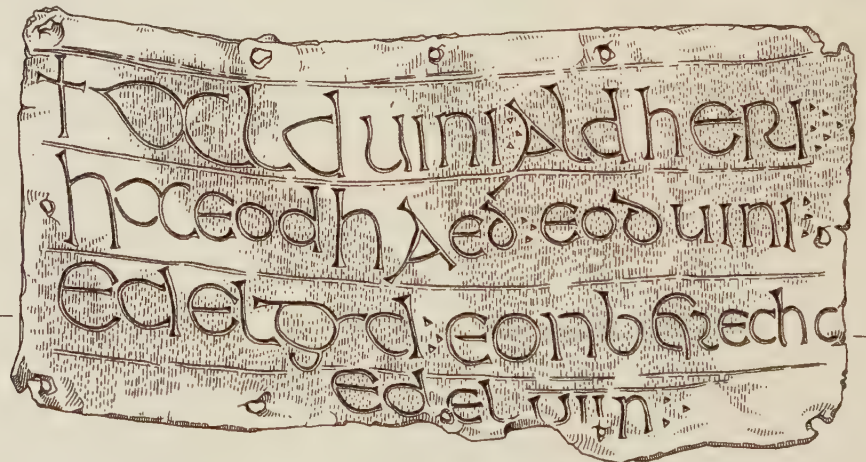 + alduini : aldheri :
haeodhaed : eoduini :
edelgyd : eonberechc
edeluiin :